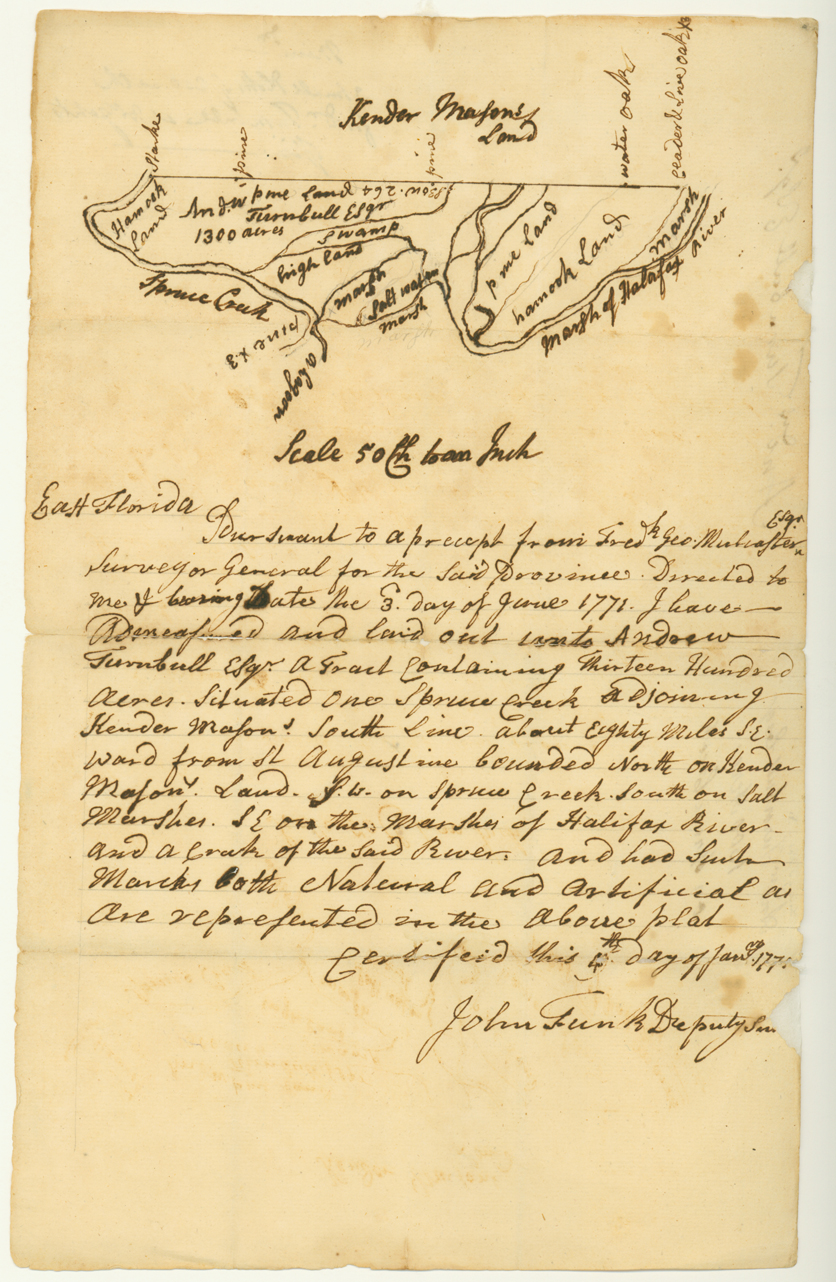 Kender Masons
Land
Stake
pine
pine
water oak
Ceader & Live oak x3
Hamock
Land
And.w pine Land
Turnbull Esqr
1300 acres
Swamp
high land
marsh
Salt water
marsh
pine Land
hamock Land
marsh
Marsh of Halifax River
Spruce Creek
pine x3
a Lagoon
Scale 50 Ch to an Inch
East Florida
Pursuant to a precept from Fredk Geo. Mulcaster Esqr
Surveyor General for the said Province. Directed to
me & bearing Date the 3. day of June 1771. I have
Admeasured and laid out unto Andrew
Turnbull Esqr. a Tract Containing Thirteen Hundred
Acres. Situated One Spruce Creek adjoining
Kender Masons. South Line. about Eighty Miles S.E.
ward from St Augustine bounded North on Kender
Masons. Land. S.W. on Spruce Creek. South on Salt
Marshes. S E on the Marshes of Halifax River
and a Creek of the said River. and had Such
Marcks both Natural and Artificial as
are represented in the above plat
Certifeid this day of Janry. 177
John Funk Deputy Sur